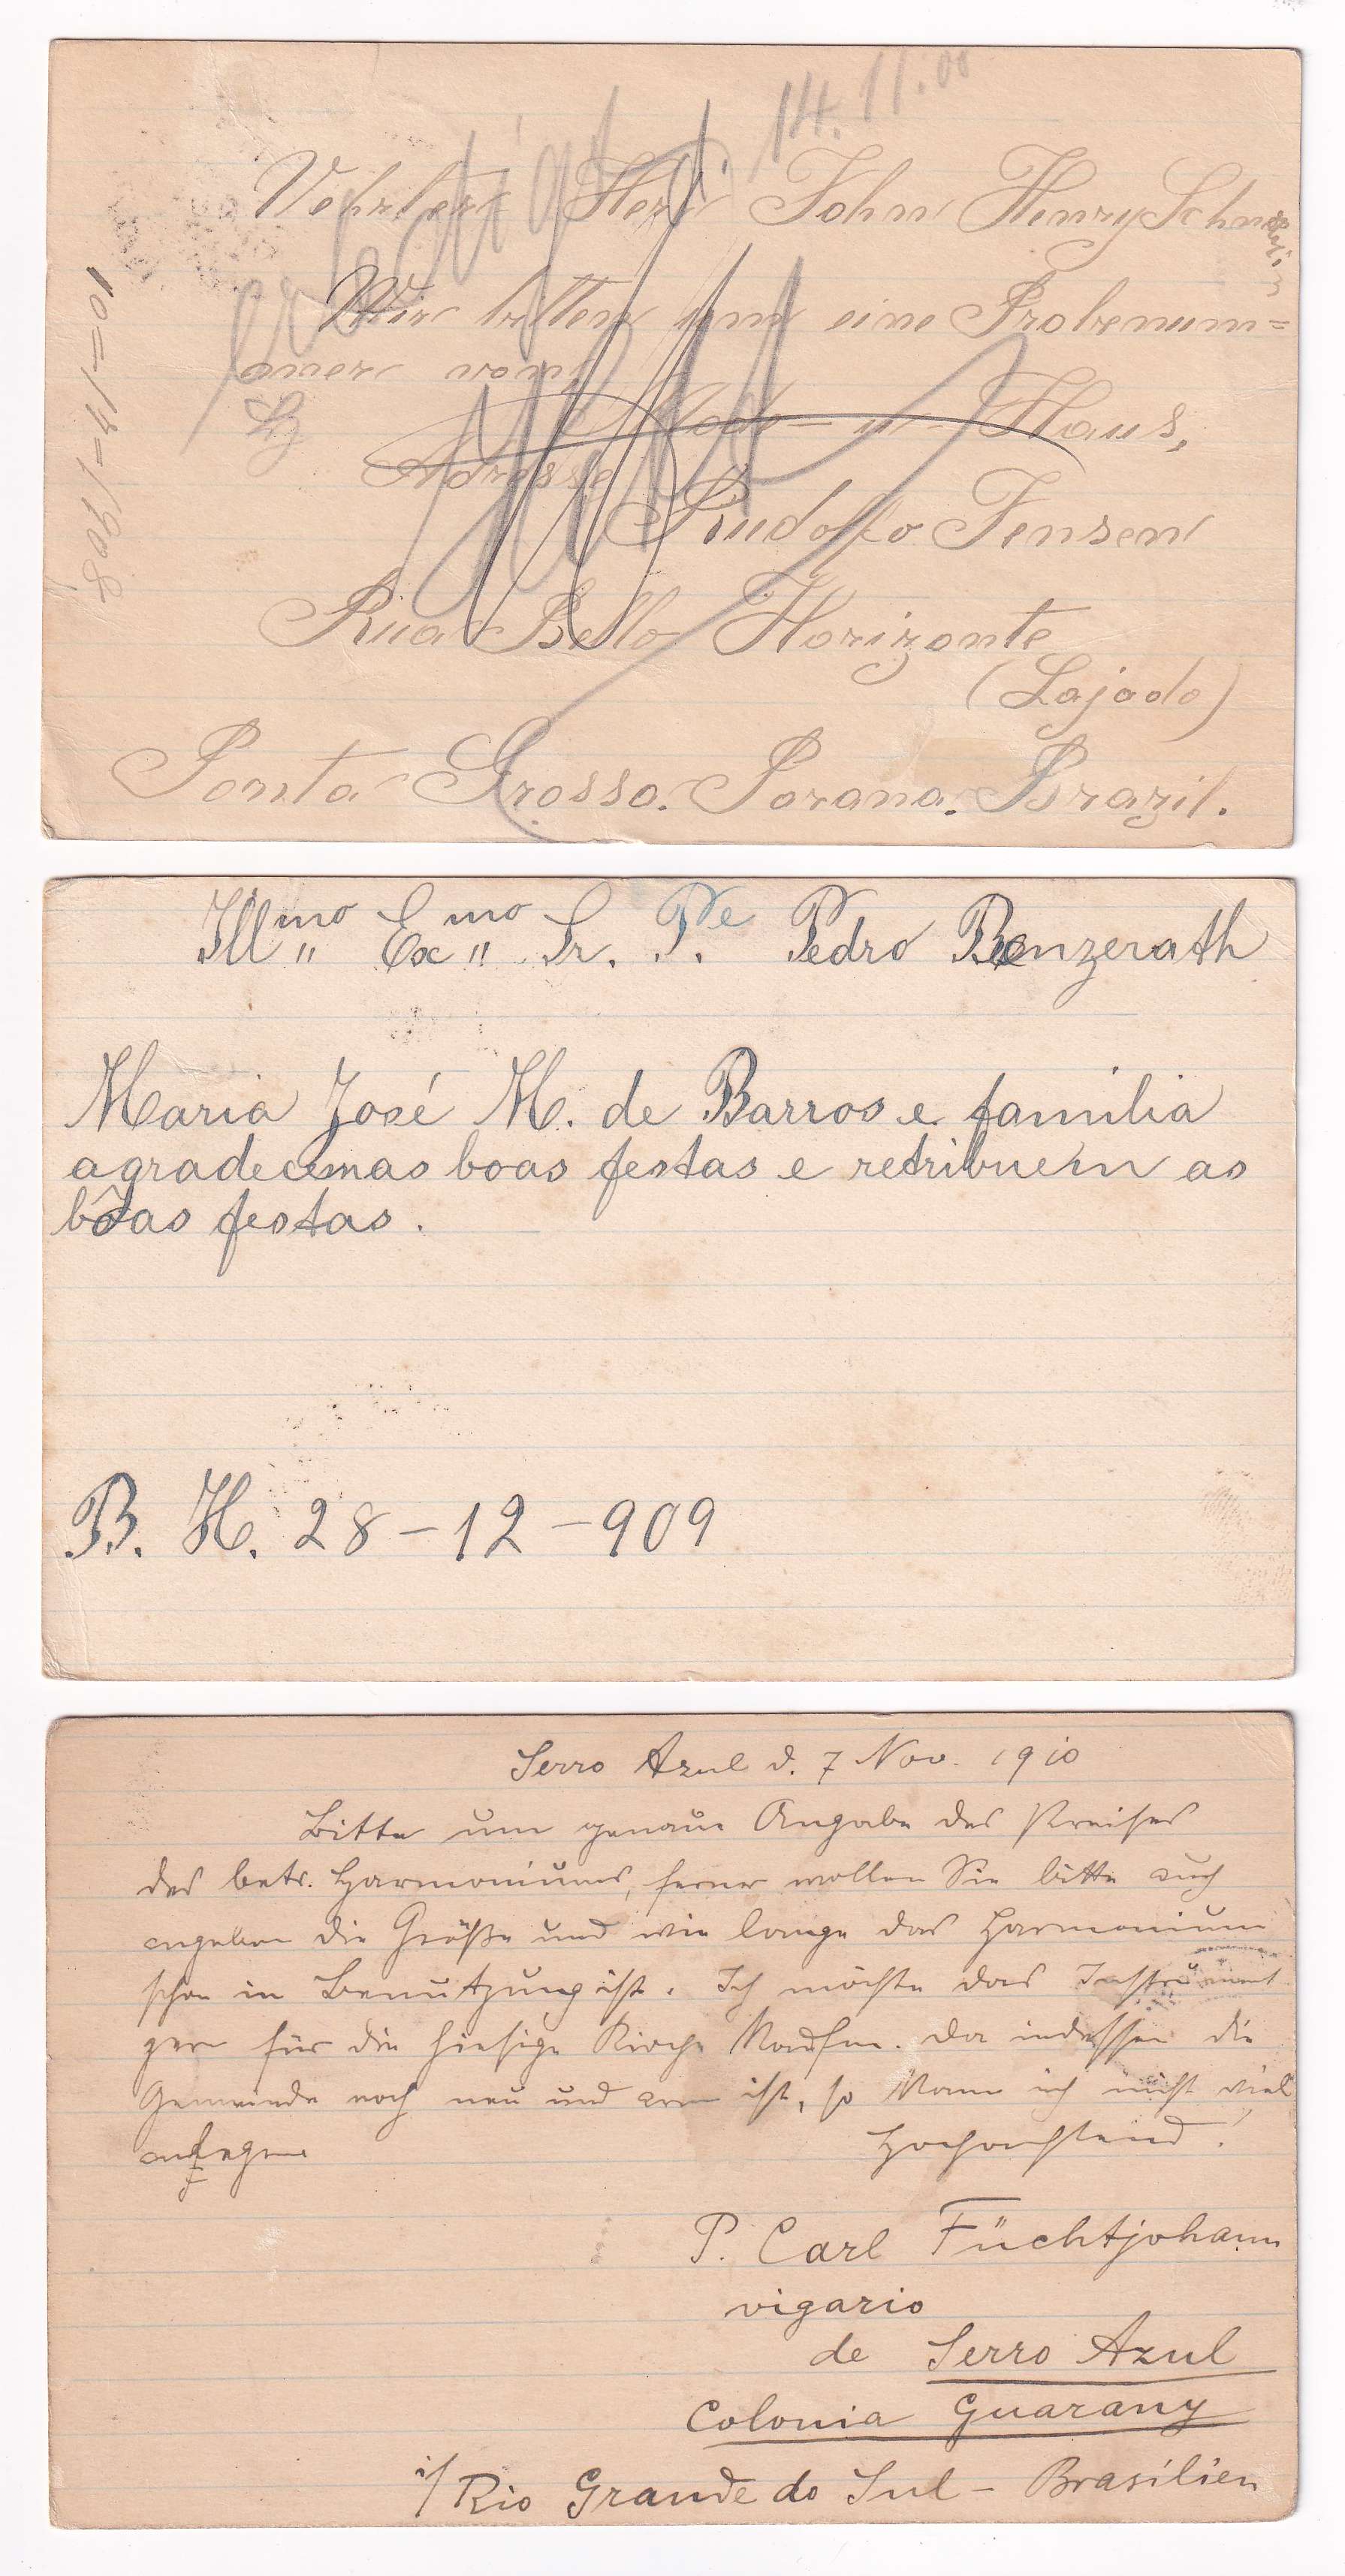 14. 11. 08
Vehrter Herr John Henry Schwerin
Wir bitten um eine Probenum=
mer von
Mode u. Haus,
Adresse
Rudolfo Jensen
Rua Bello Horizonte
(Lajado)
Ponta Grossa. Parana. Brazil.
10=14=1908
Ill mo Ex mo Sr. P. Pe Pedro Benzerath
Maria José M. de Barros e familia
agradecem as boas festas e retribuem as
bôas festas.
B. H. 28-12-909
Serro Azul d. 7 Nov. 1910
Bitte um genaue Angabe des Preises
des betr. Harmoniums, ferner wollen Sie bitte auch
angeben die Größe und wie lange das Harmonium
schon in Benutzung ist. Ich möchte das Instrument
gern für die hiesige Kirche kaufen. Da indessen die
Gemeinde noch neu und arm ist, so kann ich nicht viel
anlegen
Hochachtend!
P. Carl Füchtjohann
vigario
de Serro Azul
Colonia Guarany
i/ Rio Grande do Sul - Brasilien